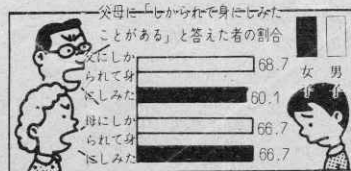 父母に「しかられて身にしみた
ことがある」と答えた者の割合
女子
男子
父にしか
られて身
にしみた
68.7
60.1
母にしか
られて身
にしみた
66.7
66.7